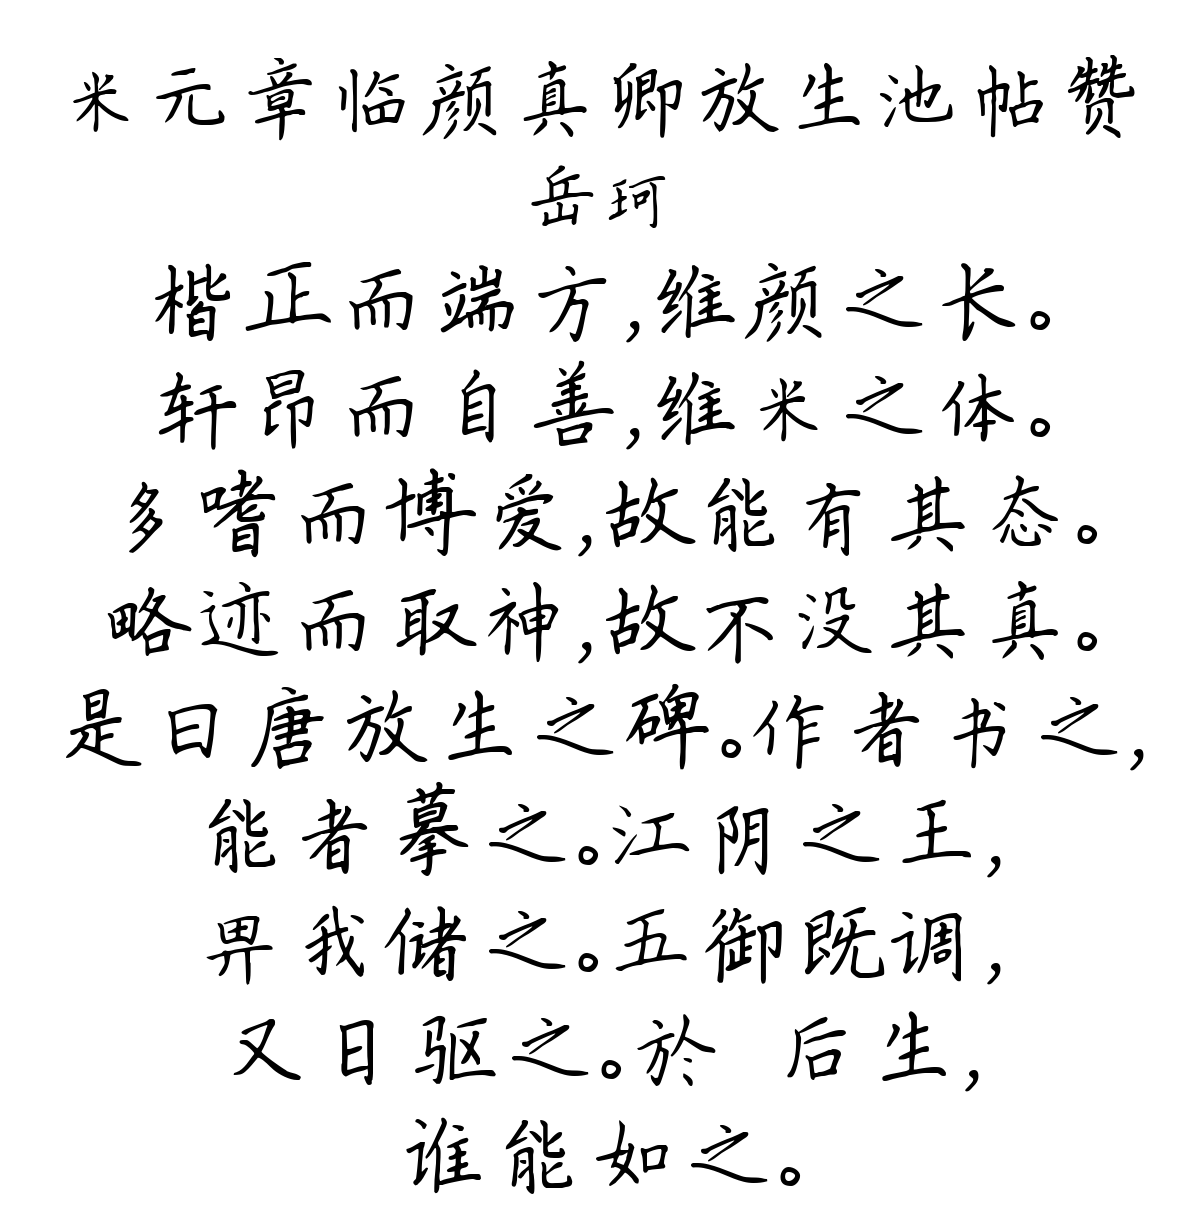 米元章临颜真卿放生池帖赞
岳珂
楷正而端方,维颜之长。
轩昂而自善,维米之体。
多嗜而博爱,故能有其态。
略迹而取神,故不没其真。
是曰唐放生之碑。作者书之,
能者摹之。江阴之王,
畀我储之。五御既调,
又日驱之。於 后生,
谁能如之。